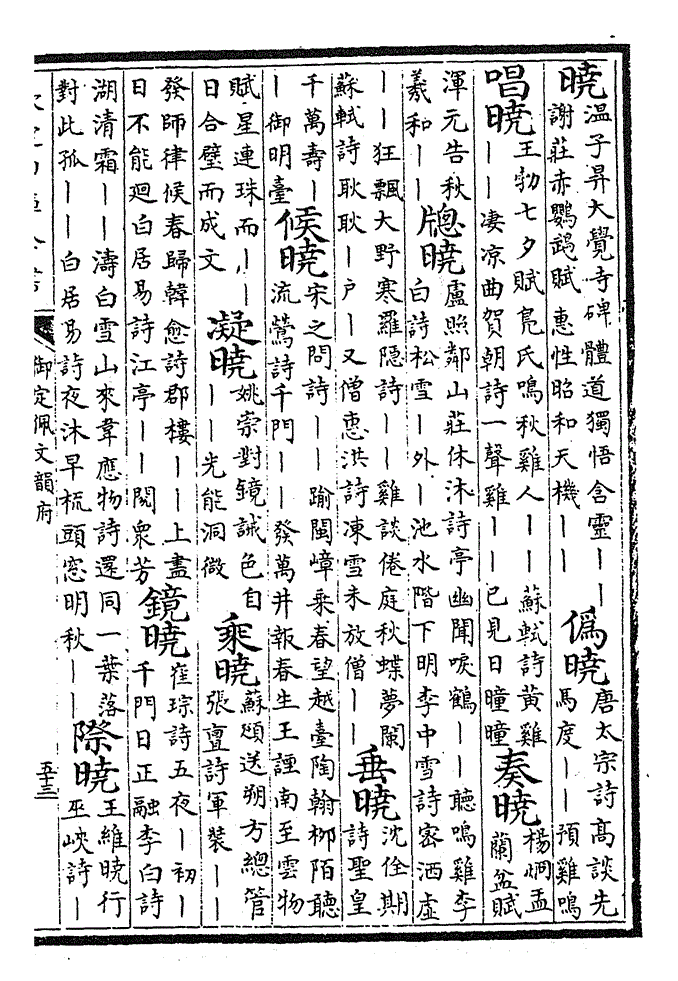 曉温子昇大覺寺碑體道獨悟含靈｜｜
謝莊赤鸚鵡賦惠性昭和天機｜｜
偽曉唐太宗詩髙談先
馬度｜｜預雞鳴
唱曉王勃七夕賦鳬氏鳴秋雞人｜｜蘇軾詩黄雞
｜｜凄凉曲賀朝詩一聲雞｜｜已見日曈曈
奏曉楊炯盂
蘭盆賦
渾元告秋
羲和｜｜
牕曉盧照鄰山莊休沐詩亭幽聞唳鶴｜｜聽鳴雞李
白詩松雪｜外｜池水階下明李中雪詩密洒虚
｜｜狂飄大野寒羅隠詩｜｜雞談倦庭秋蝶夢闌
蘇軾詩耿耿｜户｜又僧惠洪詩凍雪未放僧｜｜
垂曉沈佺期
詩聖皇
千萬壽｜
｜御明臺
候曉宋之問詩｜｜踰閩嶂乘春望越臺陶翰栁陌聽
流鶯詩千門｜｜發萬井報春生王諲南至雲物
賦星連珠而｜｜
日合璧而成文
凝曉姚崇對鏡誡色自
｜｜光能洞微
乘曉蘇頲送朔方總管
張亶詩軍裝｜｜
發師律候春歸韓愈詩郡樓｜｜上盡
日不能廻白居易詩江亭｜｜閱衆芳
鏡曉崔琮詩五夜｜初｜
千門日正融李白詩
湖清霜｜｜濤白雪山來韋應物詩還同一葉落
對此孤｜｜白居易詩夜沐早梳頭窓明秋｜｜
際曉王維曉行
巫峽詩｜
御定佩文韻府
五十三